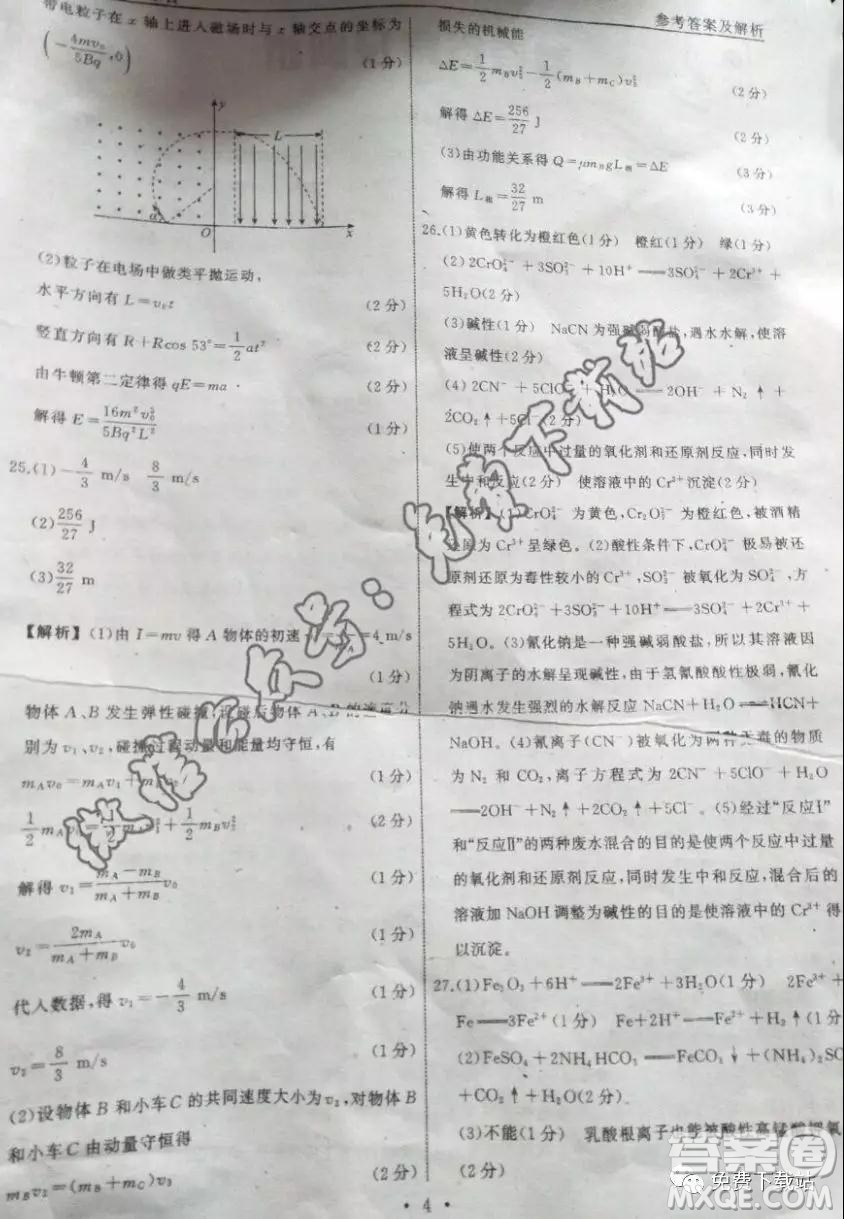 参考答案及解析
带电粒子在 x 轴上进入磁场时与 x 轴交点的坐标为
(-4mv₀/5Bq,0) (1分)
y
L
α
O
x
(2)粒子在电场中做类平抛运动,
水平方向有 L=v₀t (2分)
竖直方向有 R+Rcos 53°=1/2 at² (2分)
由牛顿第二定律得 qE=ma (2分)
解得 E=16m²v₀³/5Bq²L² (1分)
25.(1)-4/3 m/s 8/3 m/s
(2)256/27 J
(3)32/27 m
【解析】(1)由 I=mv 得 A 物体的初速 =4 m/s
(1分)
物体 A、B 发生弹性碰撞,设碰后物体 A、B 的速度分
别为 v₁、v₂,碰撞过程动量和能量均守恒,有
m_A v₀=m_A v₁+m_B v₀ (1分)
1/2 m_A v₀²=1/2 m_A v₁²+1/2 m_B v₂² (2分)
解得 v₁=(m_A-m_B)/(m_A+m_B) v₀ (1分)
v₂=2m_A/(m_A+m_B) v₀ (1分)
代入数据,得 v₁=-4/3 m/s (1分)
v₂=8/3 m/s (1分)
(2)设物体 B 和小车 C 的共同速度大小为 v₃,对物体 B
和小车 C 由动量守恒得
m_B v₂=(m_B+m_C)v₃ (2分)
损失的机械能
ΔE=1/2 m_B v₂²-1/2 (m_B+m_C)v₃² (2分)
解得 ΔE=256/27 J (2分)
(3)由功能关系得 Q=μm_B gL相=ΔE (3分)
解得 L相=32/27 m (3分)
26.(1)黄色转化为橙红色(1分) 橙红(1分) 绿(1分)
(2)2CrO₄²⁻+3SO₃²⁻+10H⁺══3SO₄²⁻+2Cr³⁺+
5H₂O(2分)
(3)碱性(1分) NaCN 为强碱弱酸盐,遇水水解,使溶
液呈碱性(2分)
(4)2CN⁻+5ClO⁻+H₂O══2OH⁻+N₂↑+
2CO₂↑+5Cl⁻(2分)
(5)使两个反应中过量的氧化剂和还原剂反应,同时发
生中和反应(2分) 使溶液中的 Cr³⁺沉淀(2分)
【解析】(1)CrO₄²⁻ 为黄色,Cr₂O₇²⁻ 为橙红色,被酒精
还原为 Cr³⁺呈绿色。(2)酸性条件下,CrO₄²⁻ 极易被还
原剂还原为毒性较小的 Cr³⁺,SO₃²⁻ 被氧化为 SO₄²⁻,方
程式为 2CrO₄²⁻+3SO₃²⁻+10H⁺══3SO₄²⁻+2Cr³⁺+
5H₂O。(3)氰化钠是一种强碱弱酸盐,所以其溶液因
为阴离子的水解呈现碱性,由于氢氰酸酸性极弱,氰化
钠遇水发生强烈的水解反应 NaCN+H₂O══HCN+
NaOH。(4)氰离子(CN⁻)被氧化为两种无毒的物质
为 N₂ 和 CO₂,离子方程式为 2CN⁻+5ClO⁻+H₂O
══2OH⁻+N₂↑+2CO₂↑+5Cl⁻。(5)经过“反应Ⅰ”
和“反应Ⅱ”的两种废水混合的目的是使两个反应中过量
的氧化剂和还原剂反应,同时发生中和反应,混合后的
溶液加 NaOH 调整为碱性的目的是使溶液中的 Cr³⁺得
以沉淀。
27.(1)Fe₂O₃+6H⁺══2Fe³⁺+3H₂O(1分) 2Fe³⁺+
Fe══3Fe²⁺(1分) Fe+2H⁺══Fe²⁺+H₂↑(1分)
(2)FeSO₄+2NH₄HCO₃══FeCO₃↓+(NH₄)₂SO
+CO₂↑+H₂O(2分)
(3)不能(1分) 乳酸根离子也能被酸性高锰酸钾氧
(2分)
·4·
答案圈
免费下载站
MXQE.COM